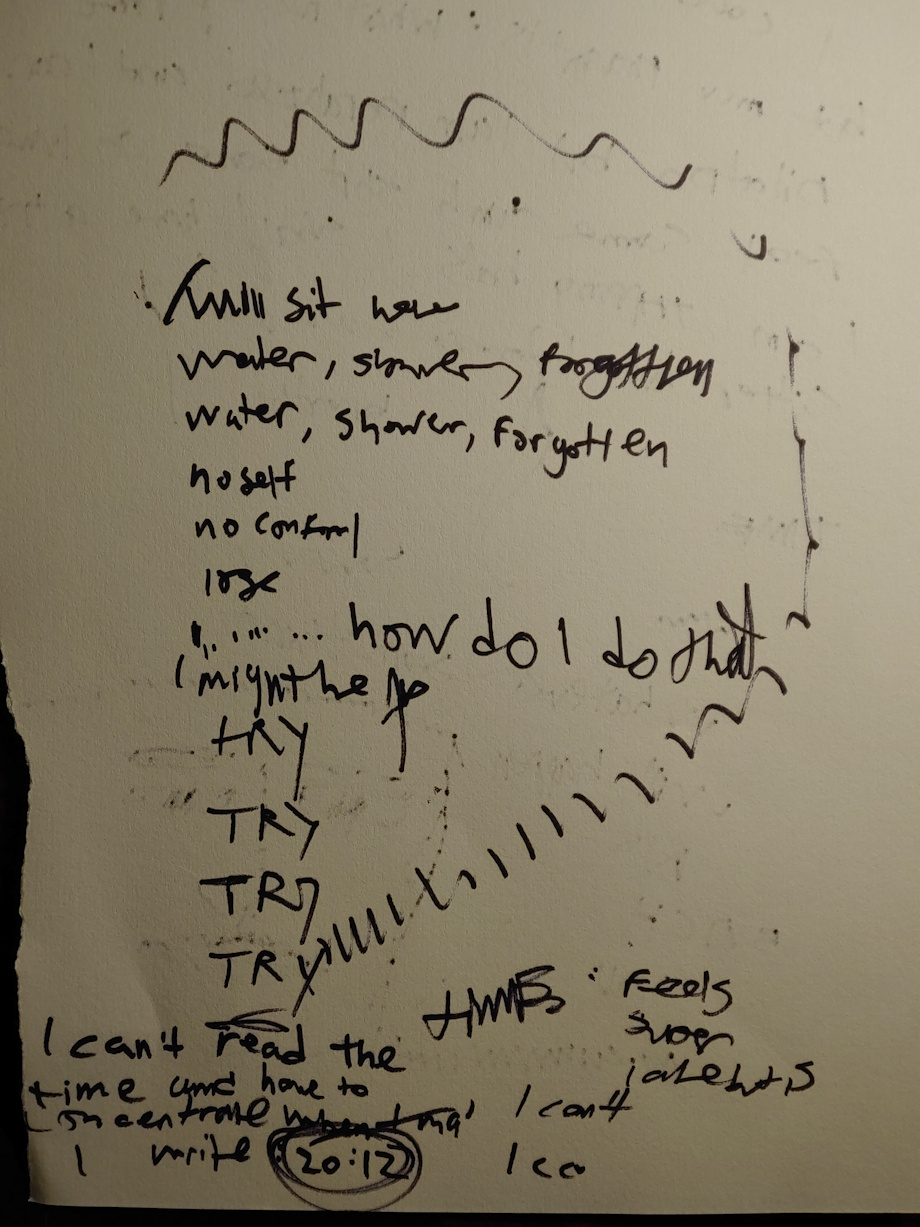 I will sit here
water, shower, forgotten
water, shower, forgotten
no self
no control
lose
......... how do I do that
I might be
TRY
TRY
TRY
TRY
TIMES: Feels
super
I can't read the
time and have to
concentrate when I
I can't
I write 20:12
I ca